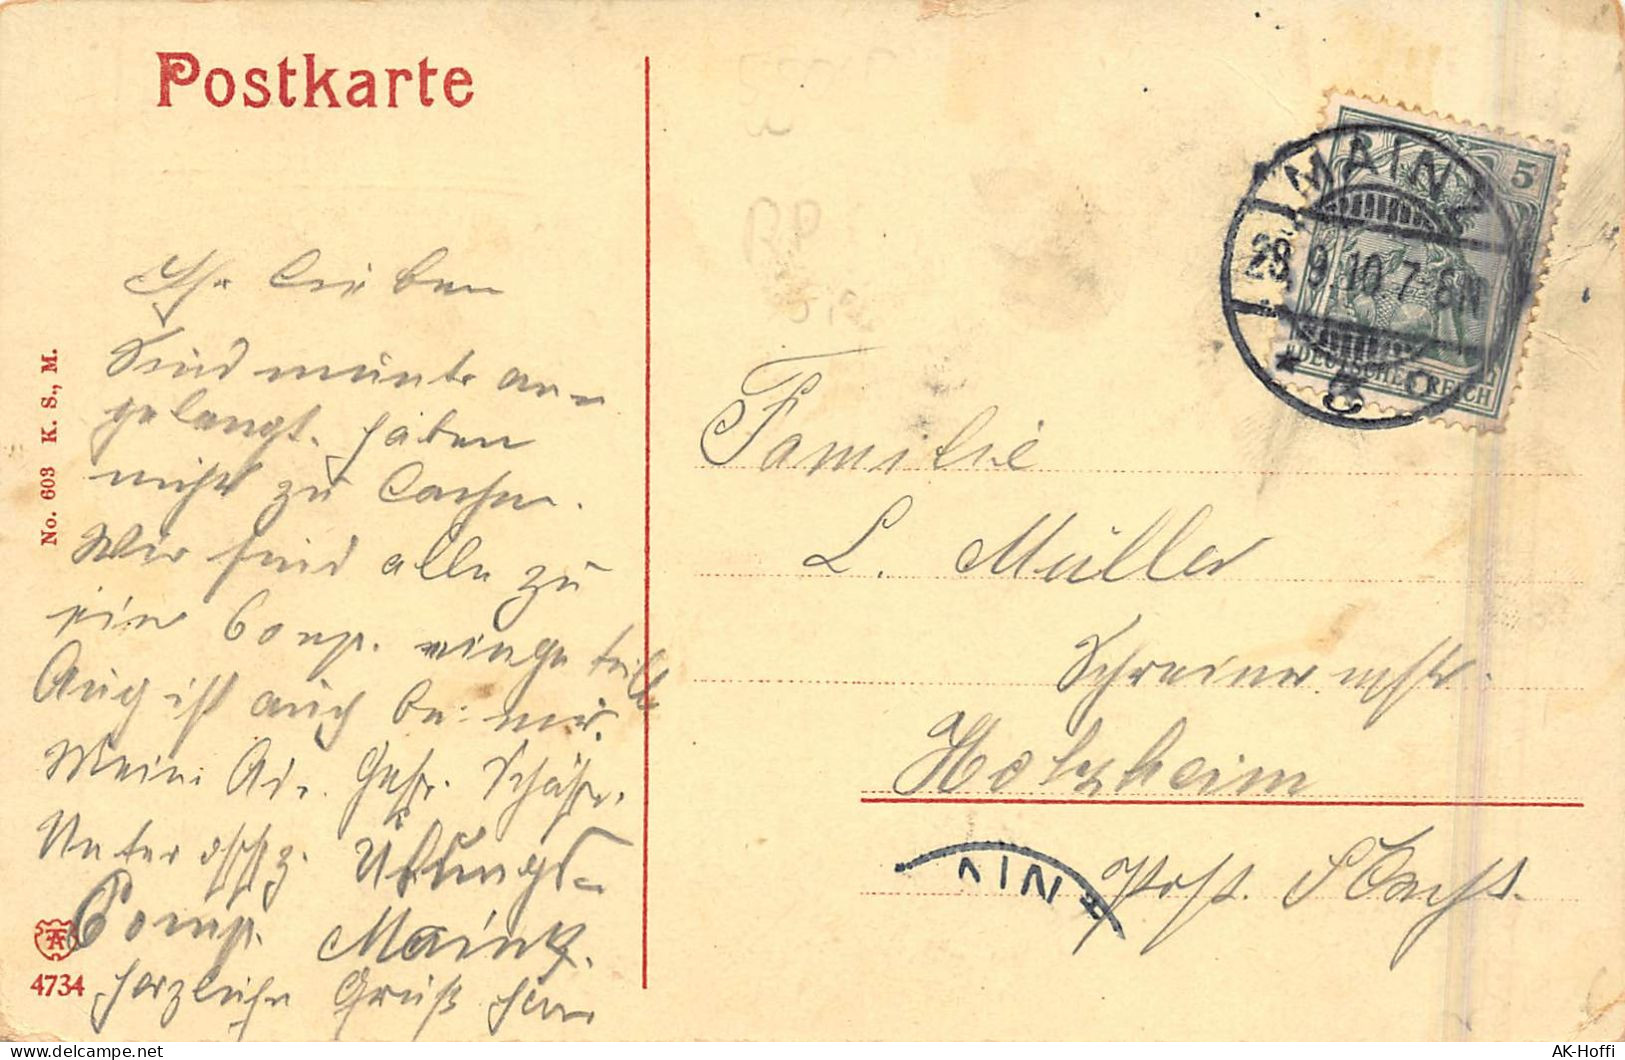 Postkarte
Ihr Lieben
Sind munter an-
gelangt. haben
nicht zu lachen.
Wir sind alle zu
eine Comp. eingeteilt
Aug ist auch bei mir.
Meine Ad. Gefr. Schäfer.
Unteroffz. Übungs-
Comp. Mainz.
herzliche Gruß
No. 603 K. S., M.
4734
MAINZ
28.9.10.7-8N
* 8 *
5
DEUTSCHES REICH
Familie
L. Müller
Schreinermstr.
Holzheim
Post. Flacht.
AINZ
AK-Hoffi